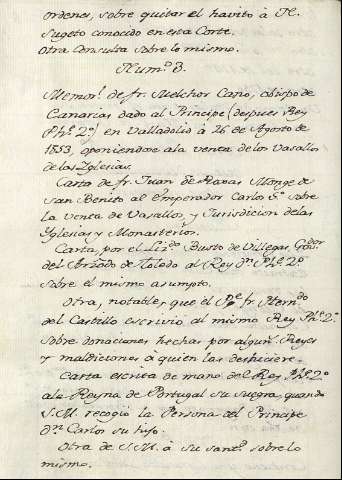 ordenes, sobre quitar el havito à N.
Sugeto conocido en esta Corte.
Otra Consulta sobre lo mismo.
Num.º 3.
Memor.l de fr. Melchor Cano, obispo de
Canarias dado al Principe (despues Rey
Ph.e 2.º) en Valladolid à 26 de Agosto de
1553, oponiendose a la venta de los Vasallos
de las Yglesias.
Carta de fr. Juan de Monge de
San Benito al Emperador Carlos 5.º sobre
la venta de Vasallos, y Jurisdicion de las
Yglesias y Monasterios.
Carta, por el Liz.do Busto de Villegas, Gov.dor
del Arzo.do de Toledo al Rey d.n Ph.e 2.º
sobre el mismo asumpto.
Otra, notable, que el P.e fr. Hern.do
del Castillo escrivio al mismo Rey Ph.e 2.º
sobre donaciones hechas por algun.s Reyes
y maldiciones à quien las deshiciere.
Carta escrita de mano del Rey Ph.e 2.º
a la Reyna de Portugal su suegra, quando
S.M. recogió la Persona del Principe
d.n Carlos su hijo.
Otra de S.M. à su sant.d sobre lo
mismo.